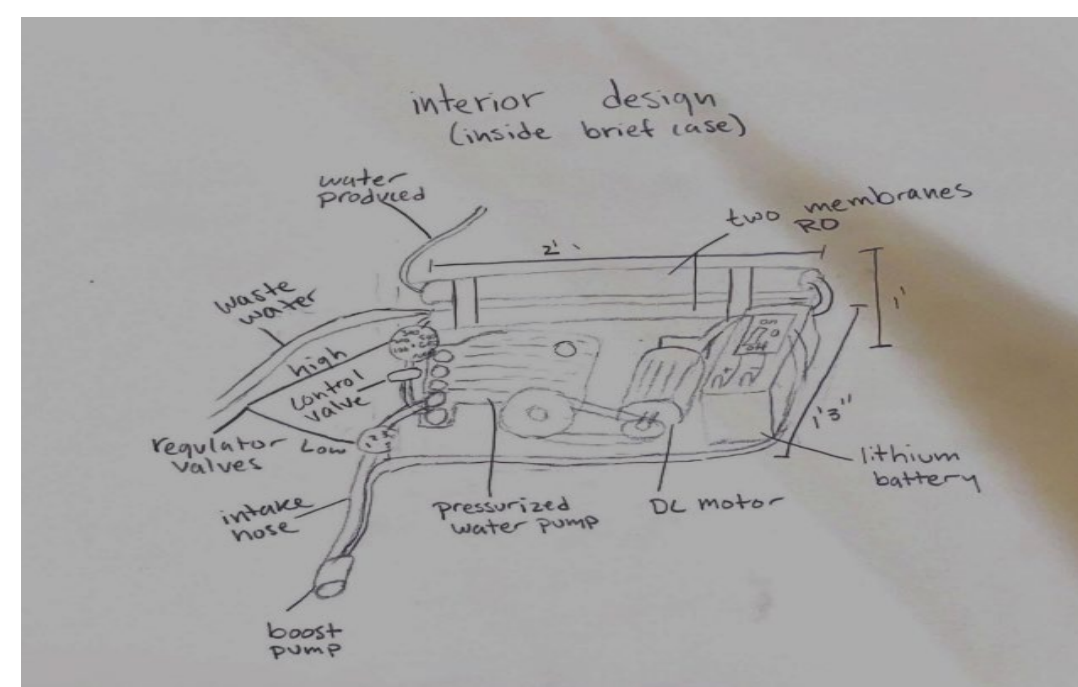 interior design
(inside brief case)
water
produced
two membranes
RO
2'
1'
waste
water
high
control
valve
regulator
valves
Low
1'3"
lithium
battery
intake
hose
pressurized
water pump
DC motor
boost
pump
on
off
1 2 3